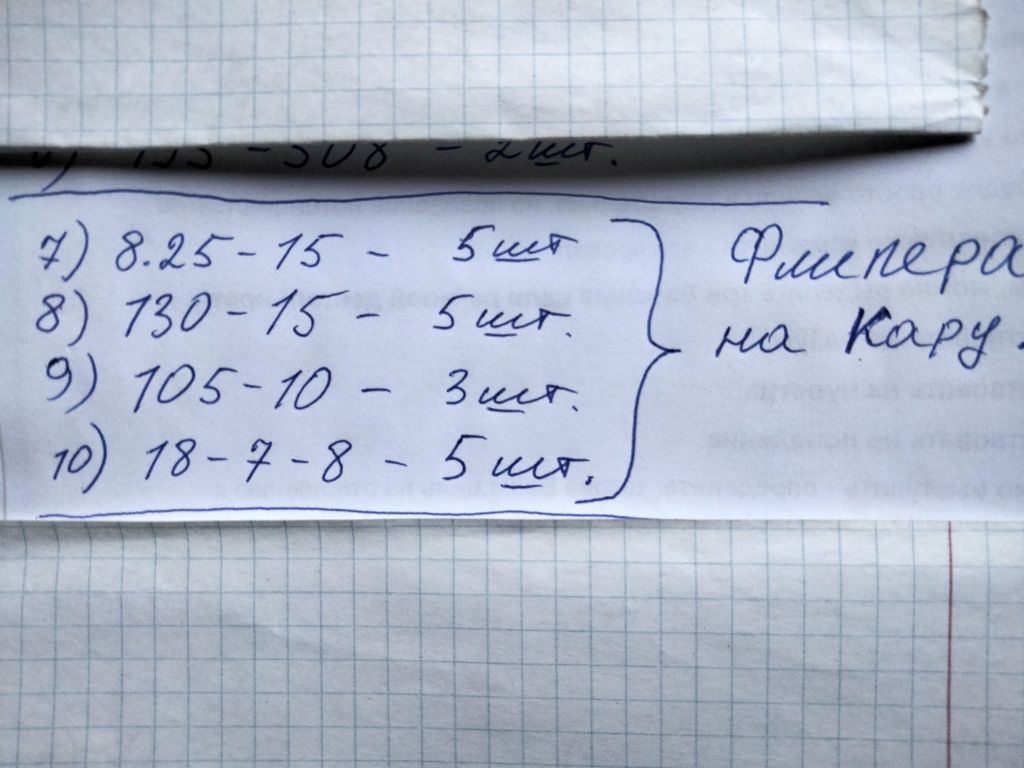 - 2 шт.
7) 8.25 - 15 - 5 шт
8) 130 - 15 - 5 шт.
9) 105 - 10 - 3 шт.
10) 18 - 7 - 8 - 5 шт.
Флипера
на Кару.